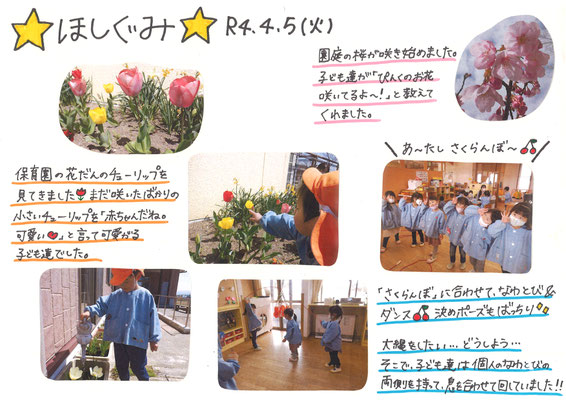 ほしぐみ R4.4.5(火)
園庭の桜が咲き始めました。
子ども達が「ぴんくのお花
咲いてるよ~!」と教えて
くれました。
保育園の花だんのチューリップを
見てきました🌷まだ咲いたばかりの
小さいチューリップを「赤ちゃんだね。
可愛い♥」と言って可愛がる
子ども達でした。
\ あ~たし さくらんぼ~🍒 /
「さくらんぼ」に合わせて、なわとび&
ダンス🍒 決めポーズもばっちり✨
大縄をしたい…どうしよう…
そこで、子ども達は個人のなわとびの
両側を持って、息を合わせて回していました!!